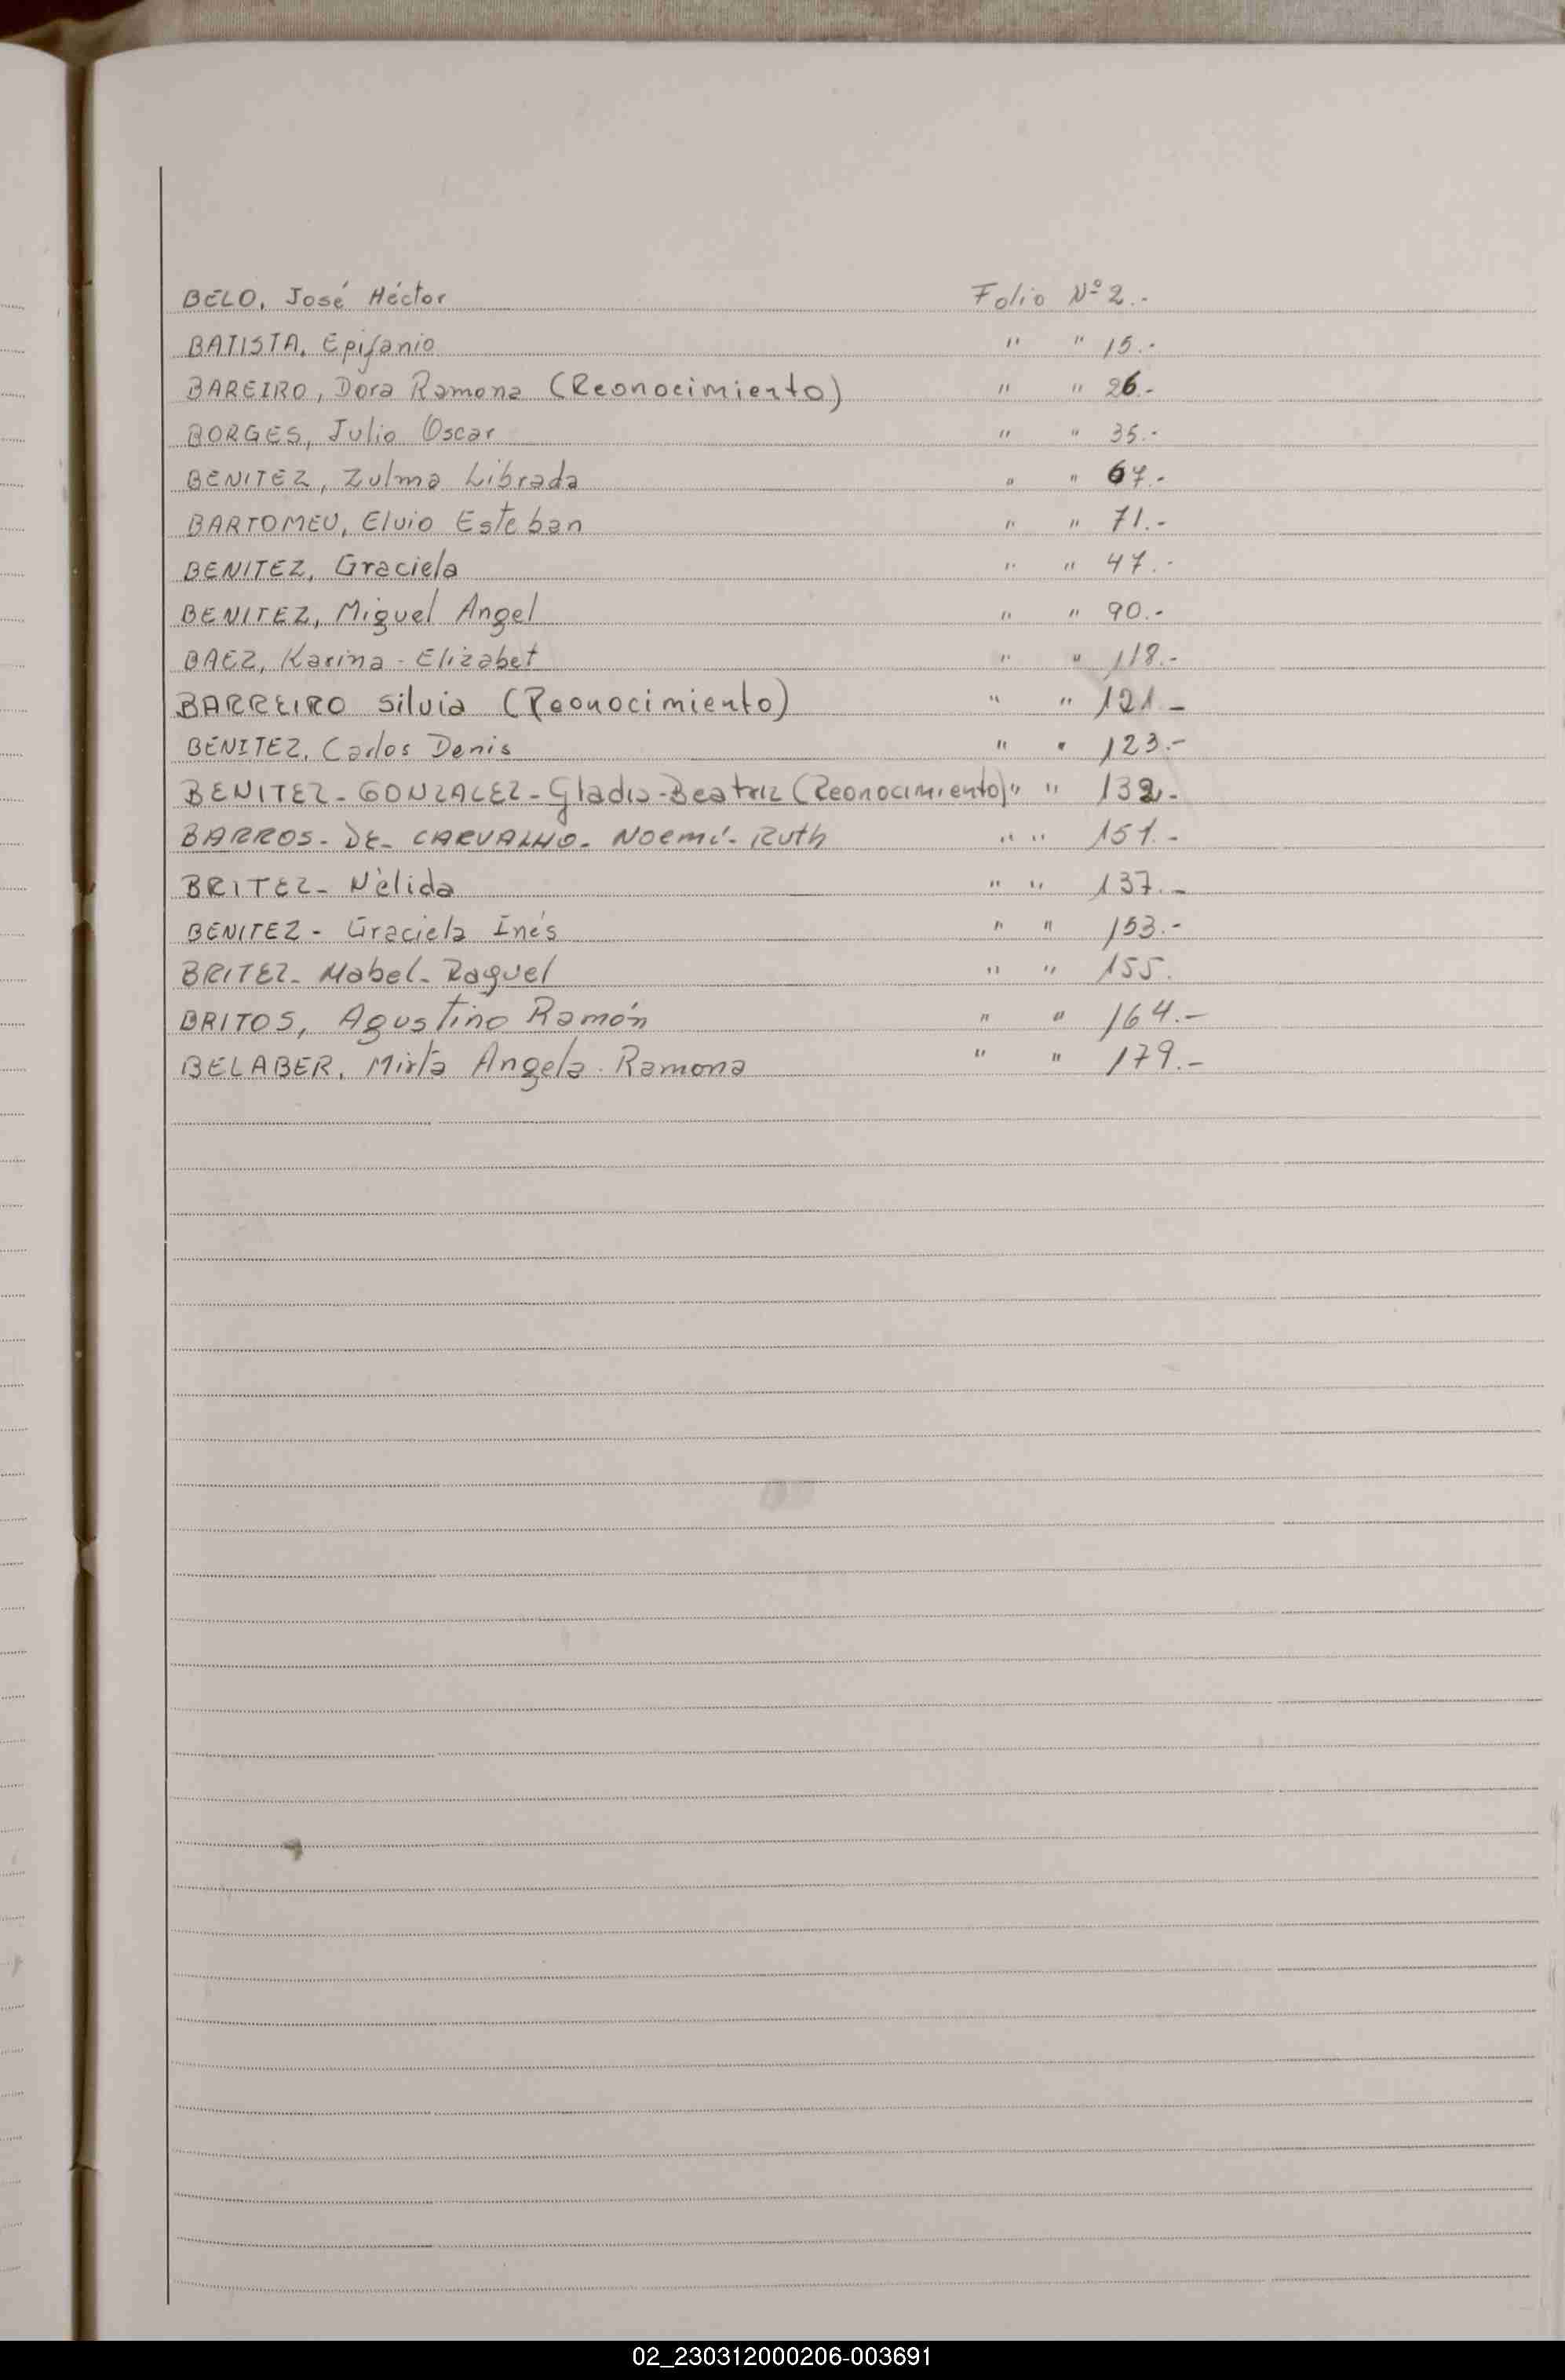 BELO, José Héctor Folio Nº 2.-
BATISTA, Epifanio " " 15.-
BAREIRO, Dora Ramona (Reonocimiento) " " 26.-
BORGES, Julio Oscar " " 35.-
BENITEZ, Zulma Librada " " 67.-
BARTOMEU, Elvio Esteban " " 71.-
BENITEZ, Graciela " " 47.-
BENITEZ, Miguel Angel " " 90.-
BAEZ, Karina - Elizabet " " 118.-
BARREIRO Silvia (Reonocimiento) " " 121.-
BENITEZ, Carlos Denis " " 123.-
BENITEZ - GONZALEZ - Gladis - Beatriz (Reonocimiento) " " 132.-
BARROS - DE - CARVALHO - Noemí - Ruth " " 151.-
BRITEZ - Nélida " " 137.-
BENITEZ - Graciela Inés " " 153.-
BRITEZ - Mabel - Raquel " " 155.
BRITOS, Agustino Ramón " " 164.-
BELABER, Mirta Angela Ramona " " 179.-
02_230312000206-003691